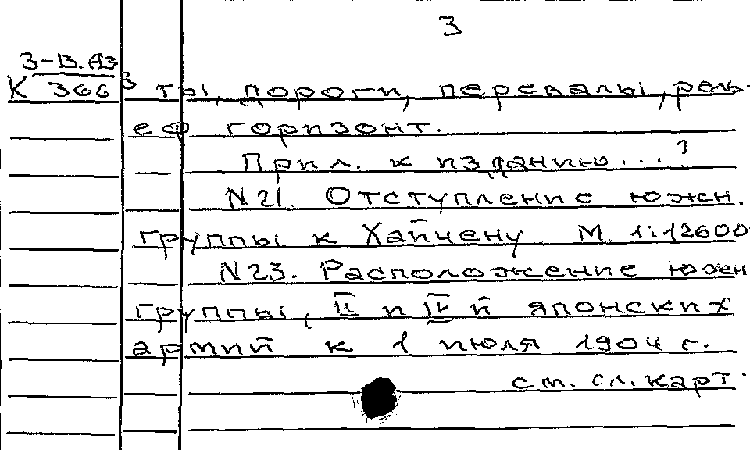 3
3-В.АЗ
К 366
3 ты, дороги, перевалы, рель-
еф горизонт.
Прил. к изданию...?
N21. Отступление южн.
группы к Хайчену М. 1:12600
N23. Расположение южн
группы, II и IV й японских
армий к 1 июля 1904 г.
см. сл. карт.